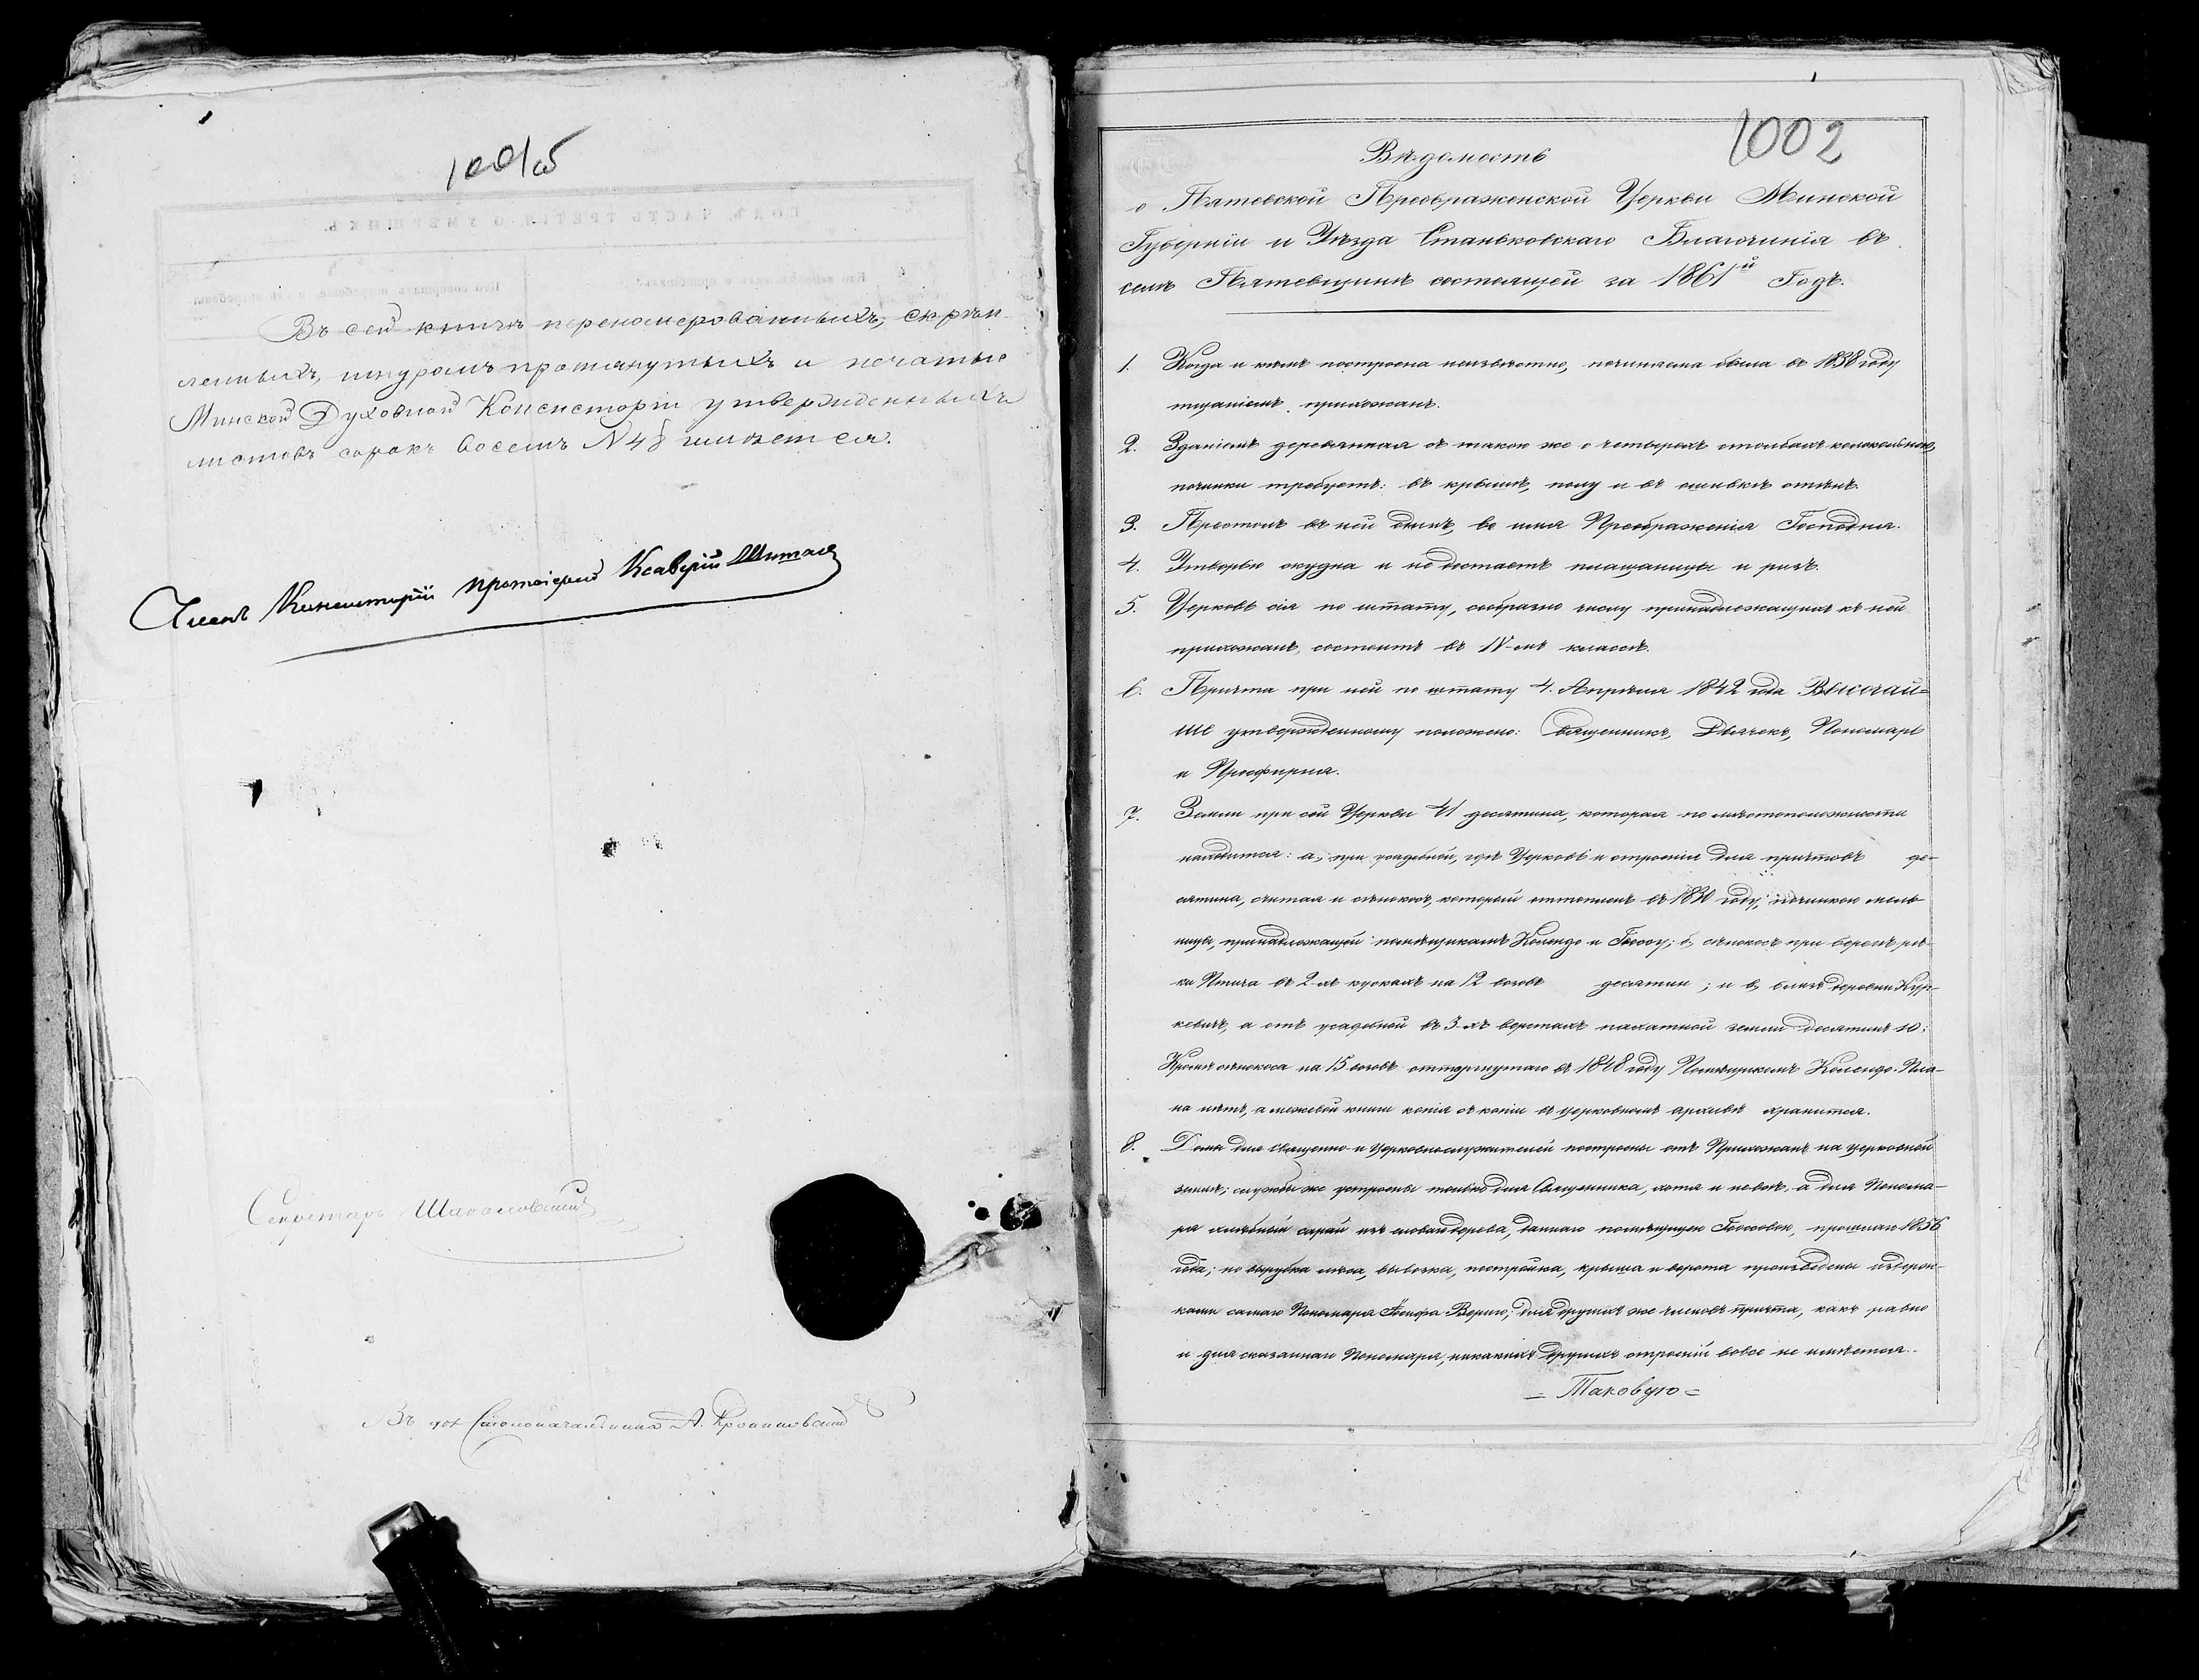 1001об
Въ сей книгѣ перенумерованныхъ, скрѣп-
ленныхъ, шнуромъ протянутыхъ и печатью
Минской Духовной Консисторіи утвержденныхъ
листовъ сорокъ восемь N 48 имѣется.
Членъ Консисторіи протоіерей Ксаверій
Секретарь
Въ дол Столоначальника А.
1002
Вѣдомость
о Пятевской Преображенской Церкви Минской
Губерніи и Уѣзда Станьковскаго Благочинія въ
селѣ Пятевщинѣ состоящей за 1861й Годъ.
1. Когда и кѣмъ построена неизвѣстно, починяема была въ 1838 году
тщаніемъ прихожанъ.
2. Зданіемъ деревянная съ такою же о четырехъ столбахъ колокольнею,
починки требуетъ: въ крышѣ, полу и въ ошивкѣ стѣнъ.
3. Престолъ въ ней одинъ, во имя Преображенія Господня.
4. Утварью скудна и не достаетъ плащаницы и ризъ.
5. Церковь сія по штату, сообразно числу принадлежащихъ къ ней
прихожанъ, состоитъ въ IV-мъ классѣ.
6. Причта при ней по штату 4. Апрѣля 1842 года Высочай=
ше утвержденному положено: Священникъ, Дьячекъ, Пономарь
и Просфирня.
7. Земли при сей Церкви 41 десятина, которая по мѣстоположности
находится: а, при усадебной, гдѣ Церковь и строенія для причтовъ де-
сятина, считая и сѣнокосъ, который оттопленъ въ 1830 году, починкою мель-
ницы, принадлежащей помѣщикамъ Колендо и Гюссу; б, сѣнокосъ при березѣ рѣ-
ки Птича въ 2-хъ кускахъ на 12 возовъ десятин ; и в, близъ деревни Кур-
кевичъ, а отъ усадебной въ 3-хъ верстахъ пахатной земли десятинъ 10;
Кромѣ сѣнокоса на 15 возовъ отторгнутаго въ 1848 году Помѣщикомъ Колендо. Пла-
на нѣтъ, а межевой книги копія съ копіи въ церковномъ архивѣ хранится.
8. Дома для Священно-и Церковнослужителей построены отъ Прихожанъ на церковной
землѣ; службы же устроены только для Священника, хотя и не всѣ, а для Понома-
ря хлѣбный сарай изъ еловаго дерева, даннаго помѣщицею Гюссовою, прошлаго 1856
года; но вырубка лѣса, вывозка, постройка, крыша и ворота произведены издерж-
ками самаго Пономаря Іосифа Вериго; для другихъ же членовъ причта, какъ равно
и для сказаннаго Пономаря, никакихъ другихъ строеній вовсе не имѣется.
= Таковую =